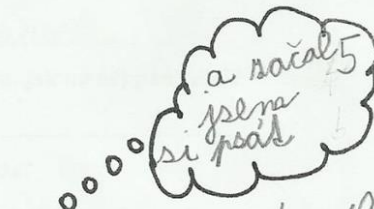 a začal 5
jsem
si psát